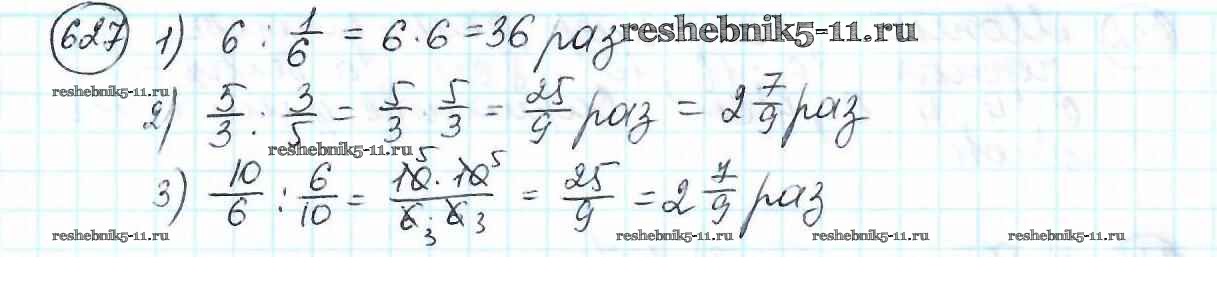 627 1) 6 : 1/6 = 6 · 6 = 36 раз reshebnik5-11.ru
reshebnik5-11.ru
2) 5/3 : 3/5 = 5/3 · 5/3 = 25/9 раз = 2 7/9 раз
reshebnik5-11.ru
3) 10/6 : 6/10 = 10 5 · 10 5 / 6 3 · 6 3 = 25/9 = 2 7/9 раз
reshebnik5-11.ru reshebnik5-11.ru reshebnik5-11.ru reshebnik5-11.ru